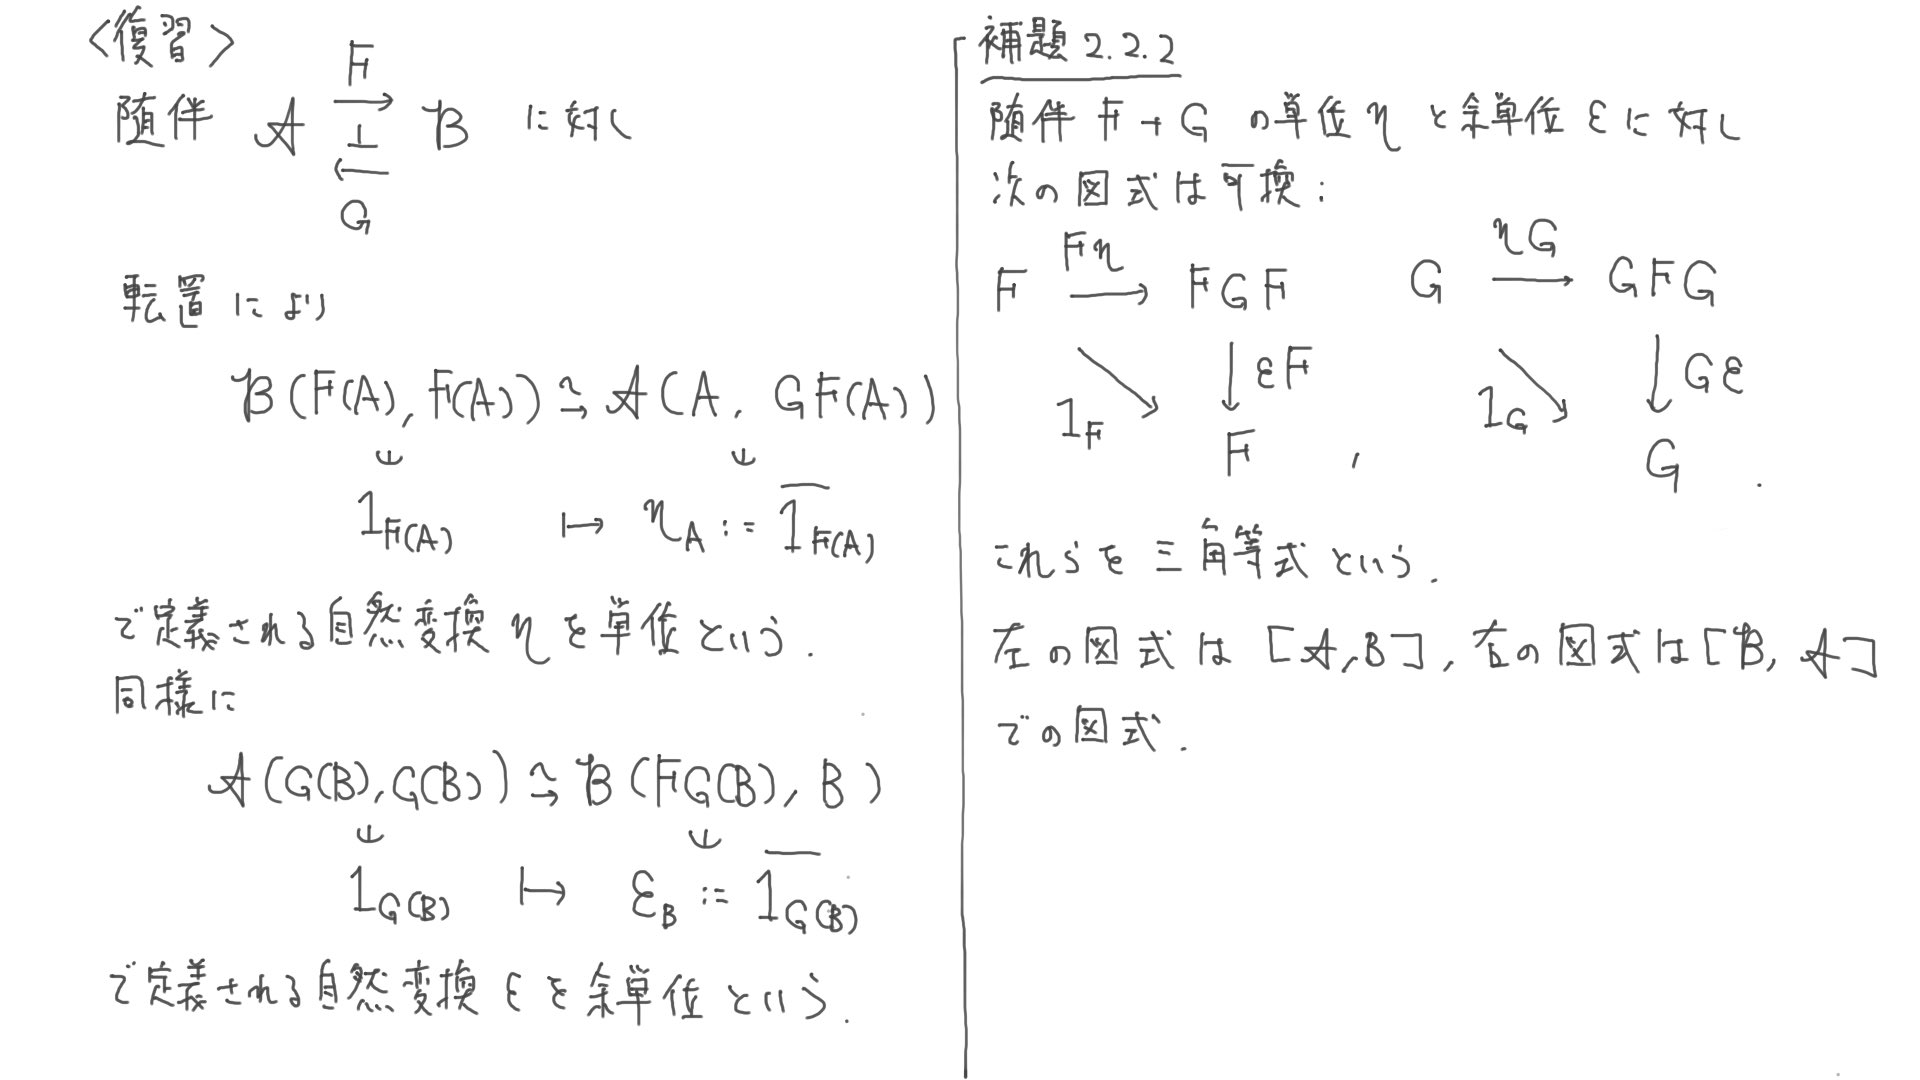 〈復習〉
F
随伴 𝒜 ⊥ ℬ に対し
G
転置により
ℬ(F(A), F(A)) ⥲ 𝒜(A, GF(A))
1_{F(A)} ↦ η_A := \overline{1_{F(A)}}
で定義される自然変換 η を単位という.
同様に
𝒜(G(B), G(B)) ⥲ ℬ(FG(B), B)
1_{G(B)} ↦ ε_B := \overline{1_{G(B)}}
で定義される自然変換 ε を余単位という.
補題 2.2.2
随伴 F ⊣ G の単位 η と余単位 ε に対し
次の図式は可換:
Fη
F → FGF
1_F ↘ ↓ εF
F ,
ηG
G → GFG
1_G ↘ ↓ Gε
G .
これらを三角等式という.
左の図式は [𝒜, ℬ], 右の図式は [ℬ, 𝒜]
での図式.